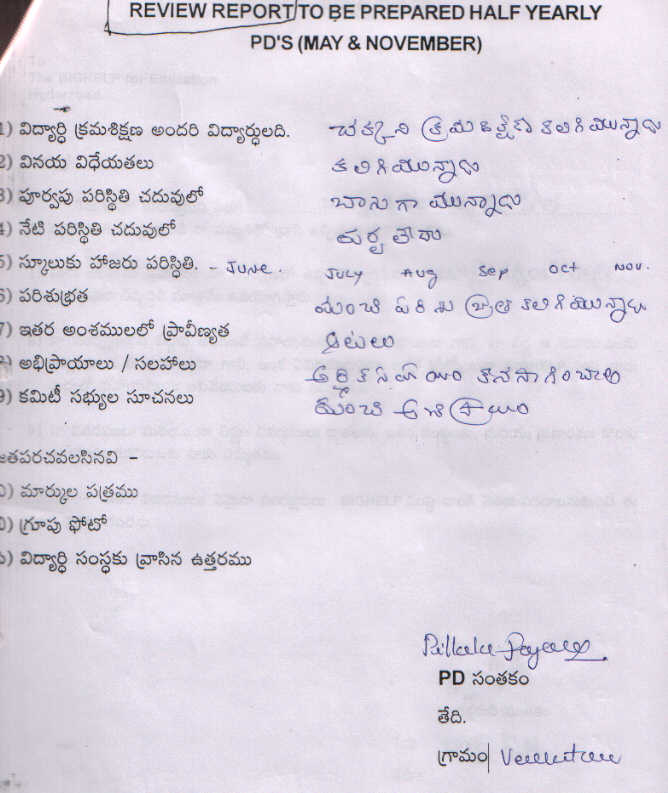 REVIEW REPORT TO BE PREPARED HALF YEARLY
PD'S (MAY & NOVEMBER)
1) విద్యార్ధి క్రమశిక్షణ అందరి విద్యార్ధులది. చక్కని క్రమశిక్షణ కలిగియున్నాడు
2) వినయ విధేయతలు కలిగియున్నాడు
3) పూర్వపు పరిస్థితి చదువులో బాగుగా యున్నాడు
4) నేటి పరిస్థితి చదువులో
5) స్కూలుకు హాజరు పరిస్థితి. - JUNE. JULY Aug Sep Oct Nov.
6) పరిశుభ్రత మంచి పరిశుభ్రత కలిగియున్నాడు
7) ఇతర అంశములలో ప్రావీణ్యత ఆటలు
8) అభిప్రాయాలు / సలహాలు ఆర్థిక సహాయం కొనసాగించాలి
9) కమిటీ సభ్యుల సూచనలు మంచి అభిప్రాయం
జతపరచవలసినవి -
) మార్కుల పత్రము
) గ్రూపు ఫోటో
) విద్యార్ధి సంస్ధకు వ్రాసిన ఉత్తరము
PD సంతకం
తేది.
గ్రామం